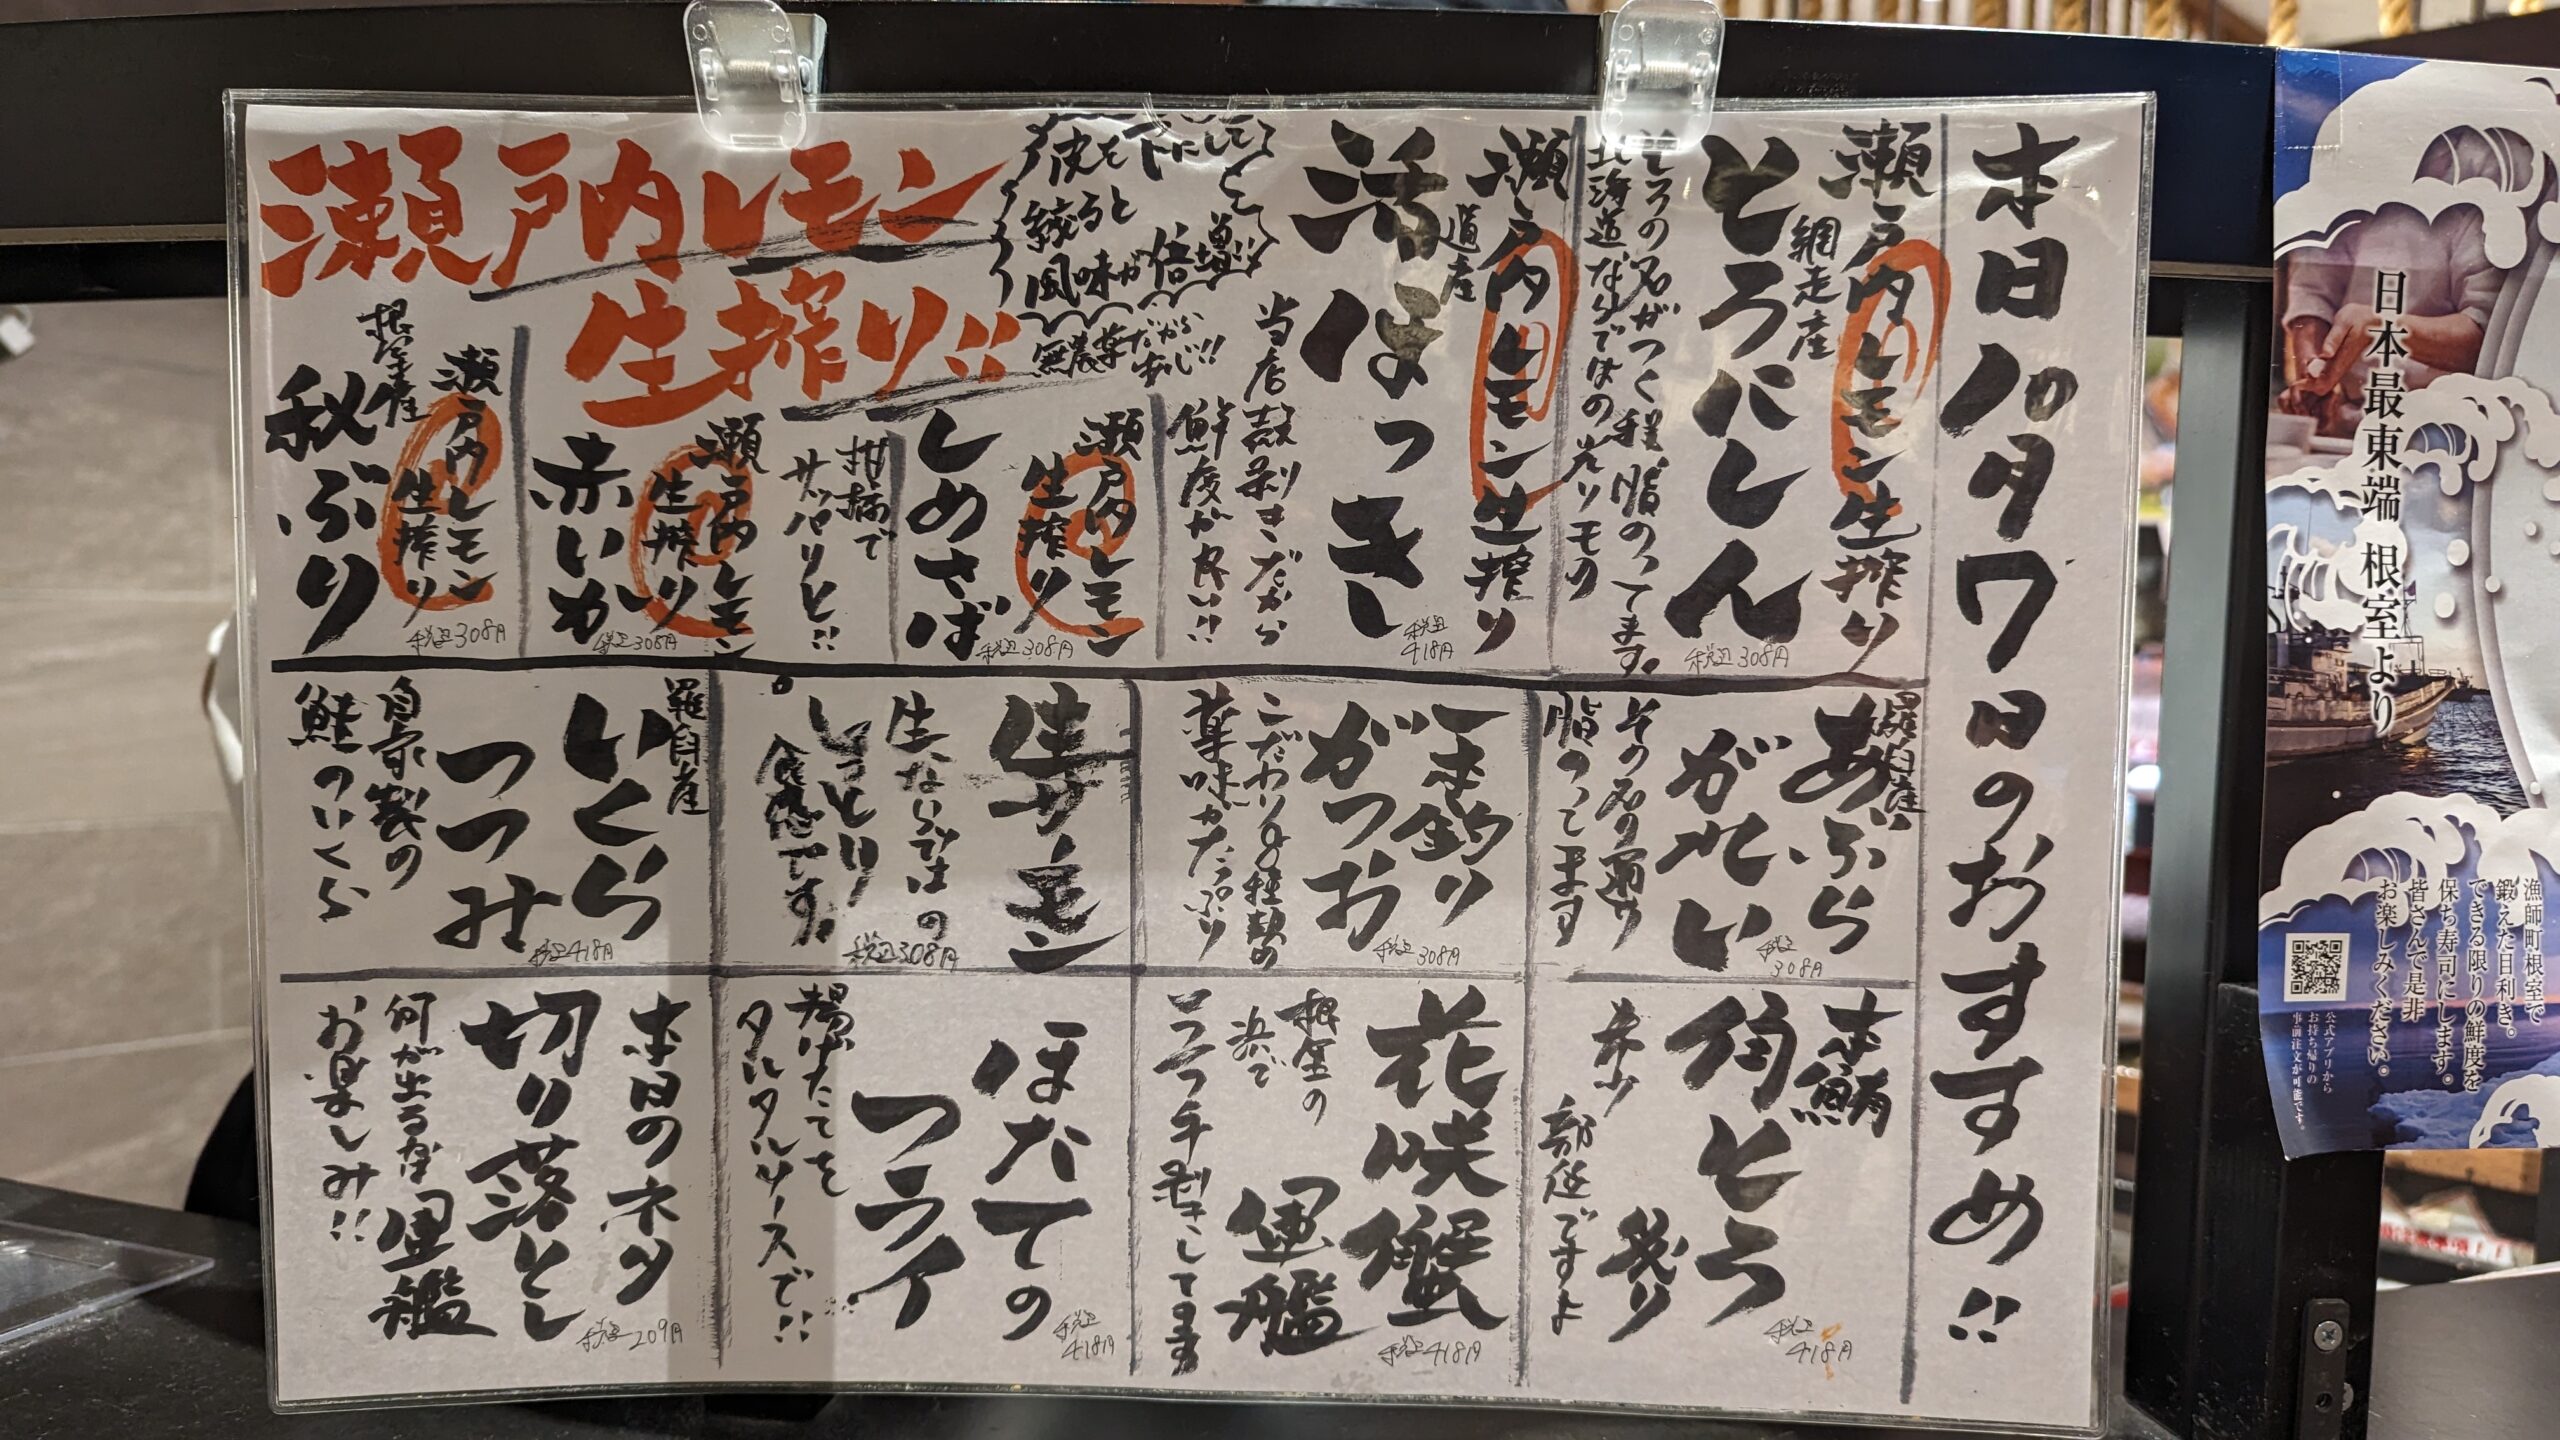 本日パタワ日のおすすめ!!
瀬戸内レモン生搾り
網走産
とろにしん
税込308円
とろの名がつく程、脂のってます。
北海道ならではの光りモノ
瀬戸内レモン生搾り
道産
活ほっき
税込
418円
当店殻剥きだから
鮮度が良い!!
皮を下にして
絞ると
風味が倍増!!
無農薬だから
安心!!
瀬戸内レモン
生搾り!!
瀬戸内レモン
生搾り
しめさば
税込308円
柑橘で
サッパリと!!
瀬戸内レモン
生搾り
赤いか
税込308円
瀬戸内レモン
生搾り
根室産
秋ぶり
税込308円
羅臼産
あぶら
がれい
税込
308円
その名の通り
脂のってます
一本釣り
がつお
税込308円
こだわり8種類の
薬味がたっぷり
生サーモン
税込308円
生ならではの
しっとり
食感です。
羅臼産
いくら
つつみ
税込418円
自家製の
鮭のいくら
本鮪
角とろ
炙り
税込
418円
希少
部位ですよ
花咲蟹
軍艦
税込418円
根室の
浜で
コツコツ手剥きしてます
ほたての
フライ
税込
418円
揚げたてを
タルタルソースで!!
本日のネタ
切り落とし
軍艦
税込209円
何が出るか
お楽しみ!!
日本最東端 根室より
漁師町根室で
鍛えた目利き。
できる限りの鮮度を
保ち寿司にします。
皆さんで是非
お楽しみください。
公式アプリから
お持ち帰りの
事前注文が可能です。